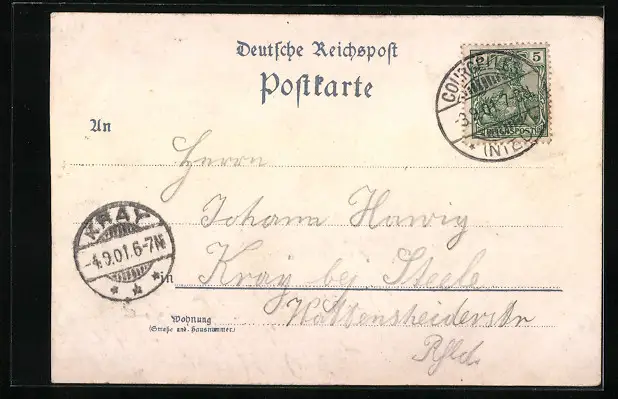 Deutsche Reichspost
Postkarte
5
REICHSPOST
COURCELLES
3. 9. 01. 7-8
An
Herrn
Johann Hawig
KRAY
-4.9.01.6-7N
in Kray bej Steele
Wohnung
(Straße und Hausnummer.)
Wattenscheiderstr
Rhld.